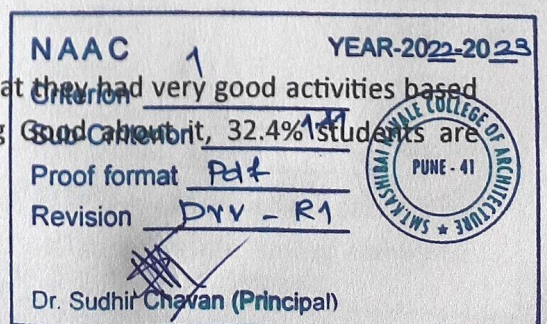 NAAC 1 YEAR-2022-2023
at they had very good activities based
Criterion
g Good about it, 32.4% students are
Sub Criterion 1.4.1
Proof format Pdf
Revision DVV - R1
Dr. Sudhir Chavan (Principal)
SMT. KASHIBAI NAVALE COLLEGE OF ARCHITECTURE
PUNE - 41